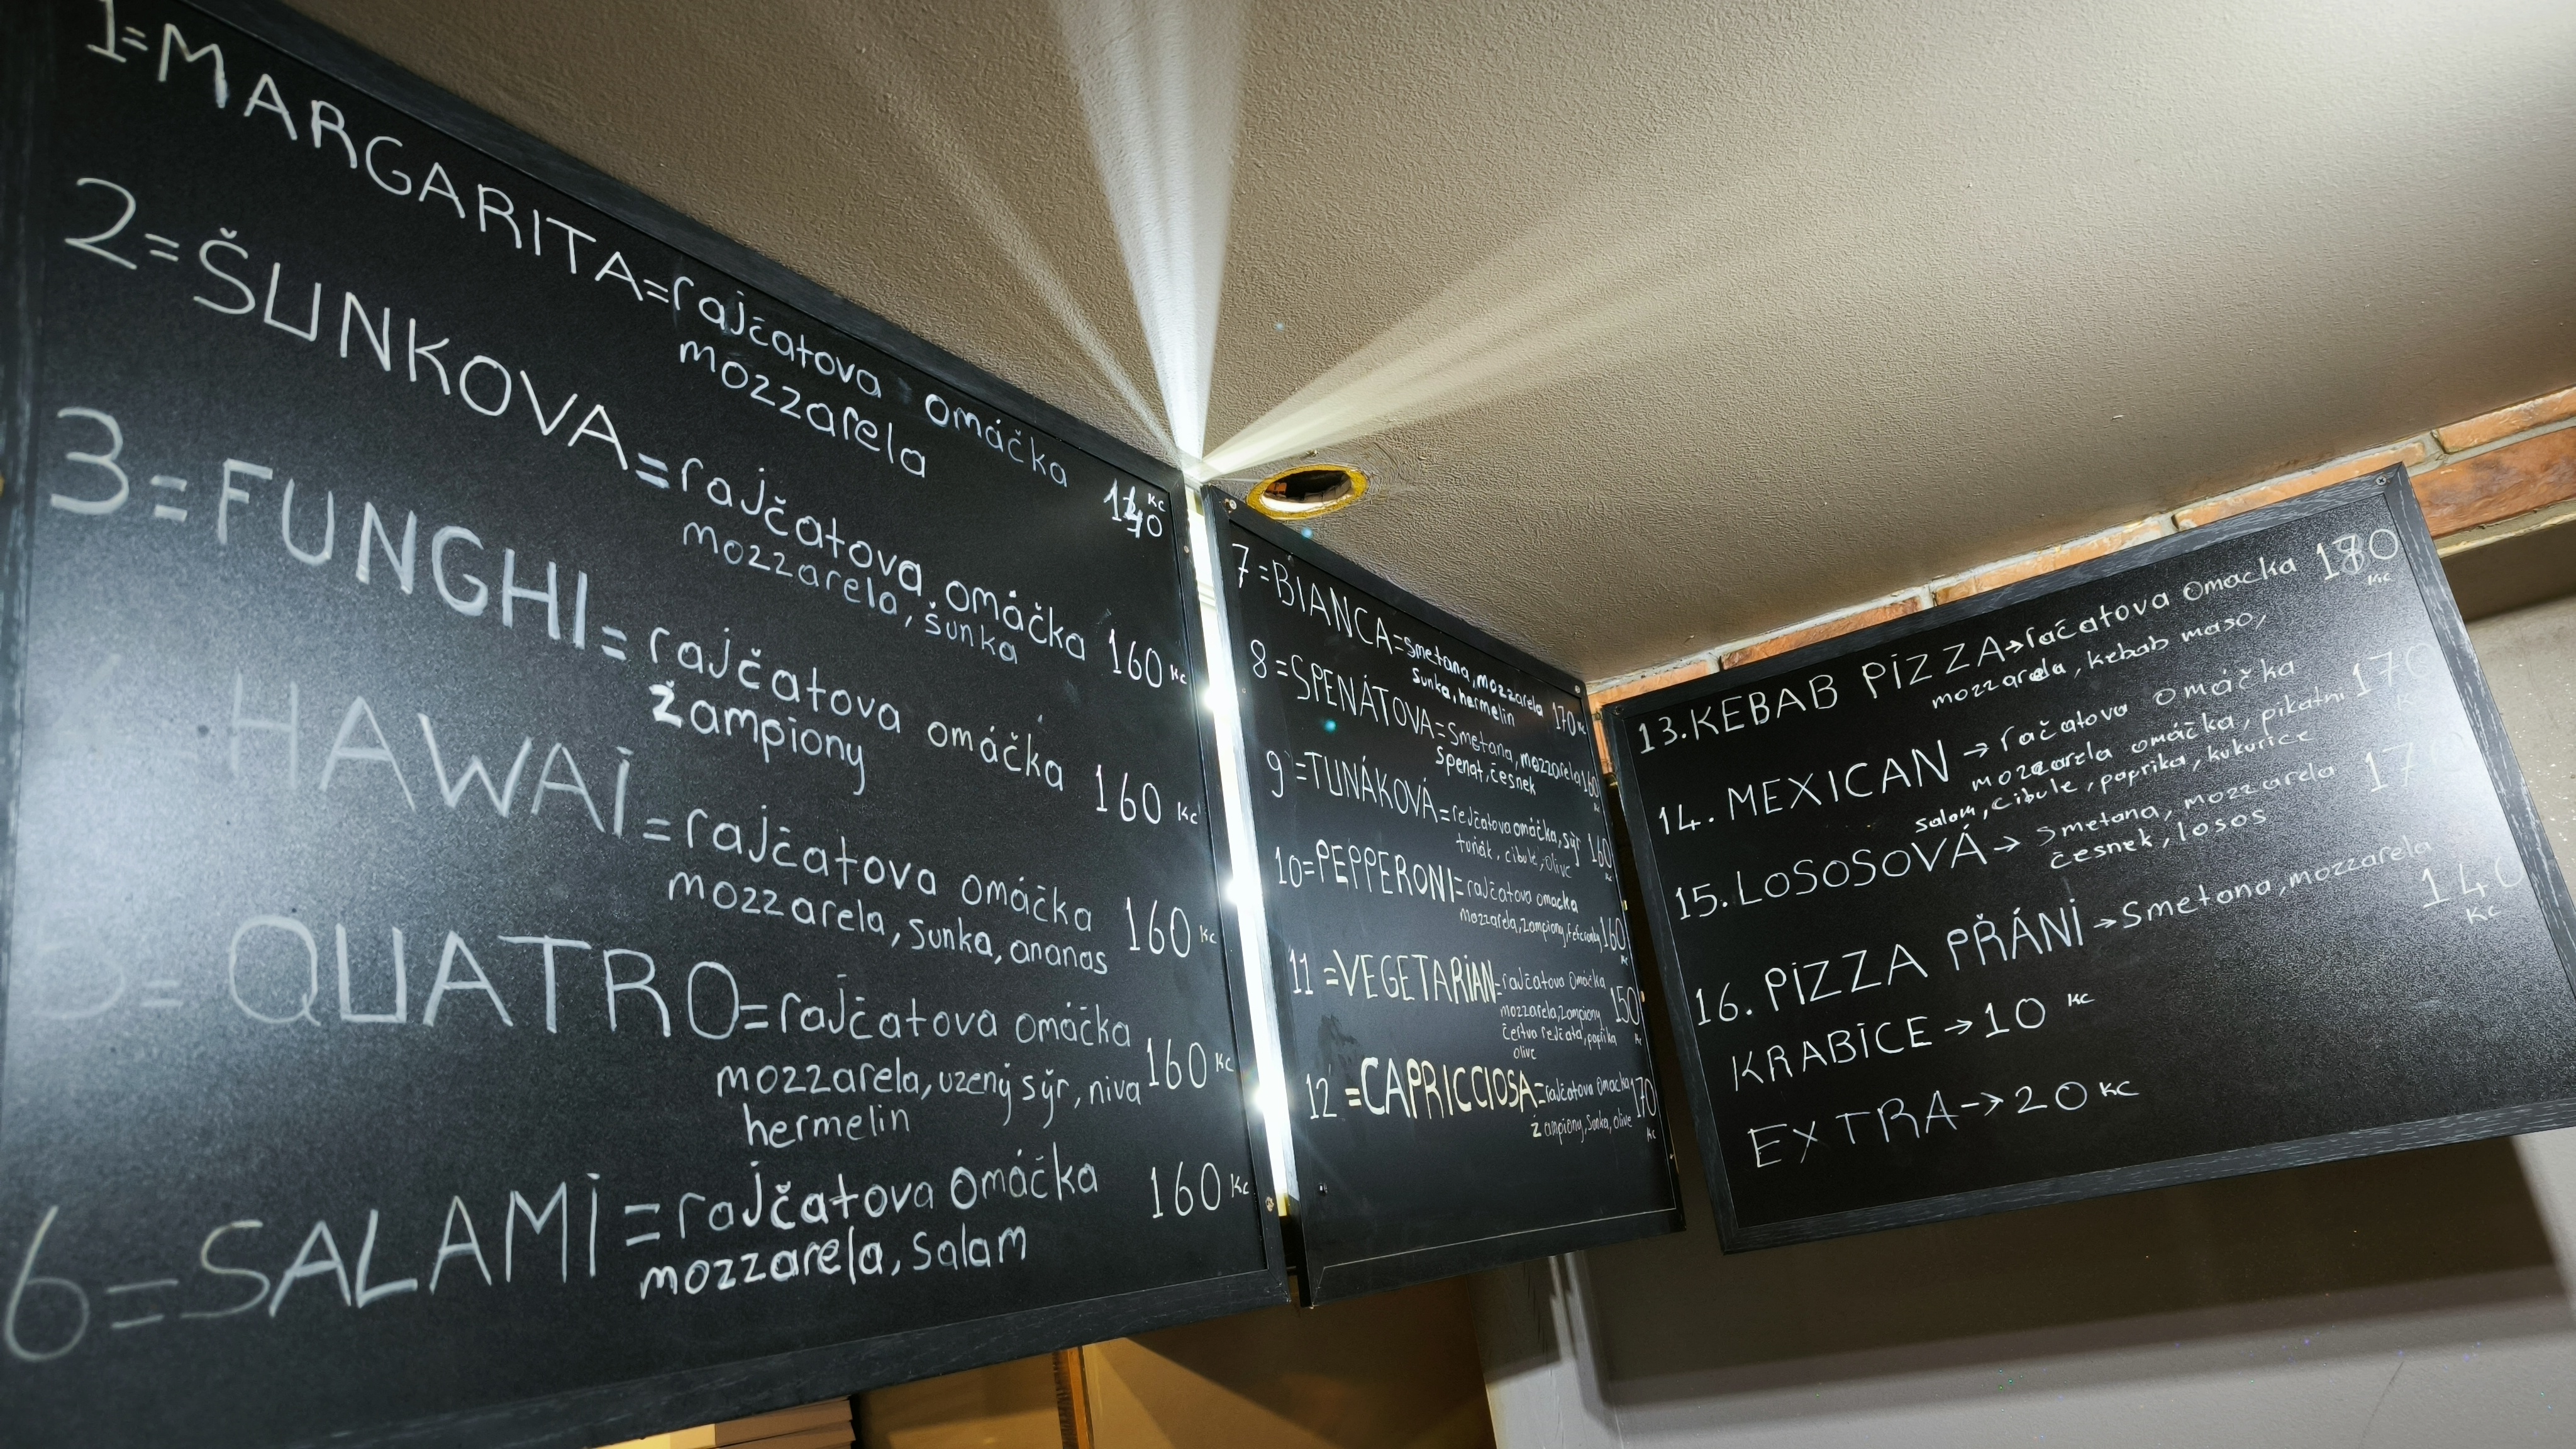 1=MARGARITA=rajčatova omáčka
mozzarela
Kc
2=ŠUNKOVA=rajčatova omáčka 160 Kc
mozzarela, šunka
3=FUNGHI=rajčatova omáčka 160 Kc
žampiony
HAWAi=rajčatova omáčka 160 Kc
mozzarela, sunka, ananas
5=QUATRO=rajčatova omáčka 160 Kc
mozzarela, uzený sýr, niva
hermelin
6=SALAMi=rajčatova omáčka 160 Kc
mozzarela, salam
7=BIANCA=smetana, mozzarela 170 Kc
sunka, hermelin
8=SPENÁTOVA=smetana, mozzarela 160 Kc
spenat, česnek
9=TUNÁKOVÁ=rejčatova omáčka, sýr 160 Kc
tuňák, cibule, olive
10=PEPPERONI=rajčatova omacka
mozzarela, zampiony, 160 Kc
11=VEGETARIAN=rajčatova omačka
mozzarela, zampiony 150 Kc
čertva rejčata, paprika
olive
12=CAPRICCIOSA=rajčatova omacka 170 Kc
zampiony, sunka, olive
13.KEBAB PiZZA→račatova omacka Kc
mozzarela, kebab maso,
14. MEXICAN→račatova omáčka 170
mozzarela omáčka, pikatni
salam, cibule, paprika, kukurice
15. LOSOSOVÁ→smetana, mozzarela 170
česnek, losos
16. PiZZA PŘÁNÍ→smetana, mozzarela 140 Kc
KRABiCE→10 Kc
EXTRA→20 Kc